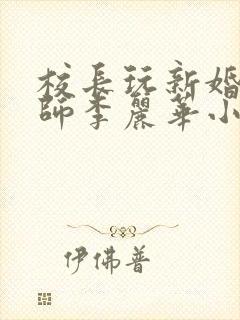 校長玩新婚
師李麗華小
伊佛普